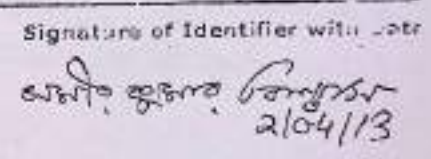 Signature of Identifier with Date
সমীর কুমার বিশ্বাস
2/04/13